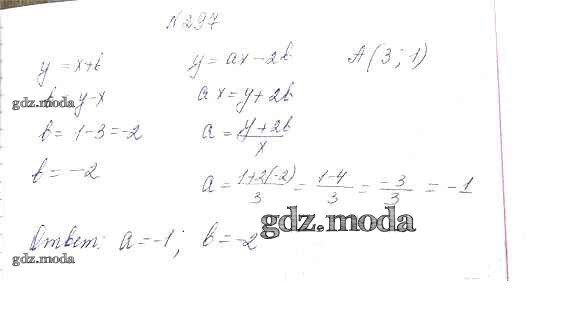 №297
y = x+b y = ax-2b A(3;1)
b y-x ax = y+2b
gdz.moda
b = 1-3=-2 a = y+2b/x
b = -2 a = 1+2(-2)/3 = 1-4/3 = -3/3 = -1
gdz.moda
Ответ: a=-1; b=-2
gdz.moda